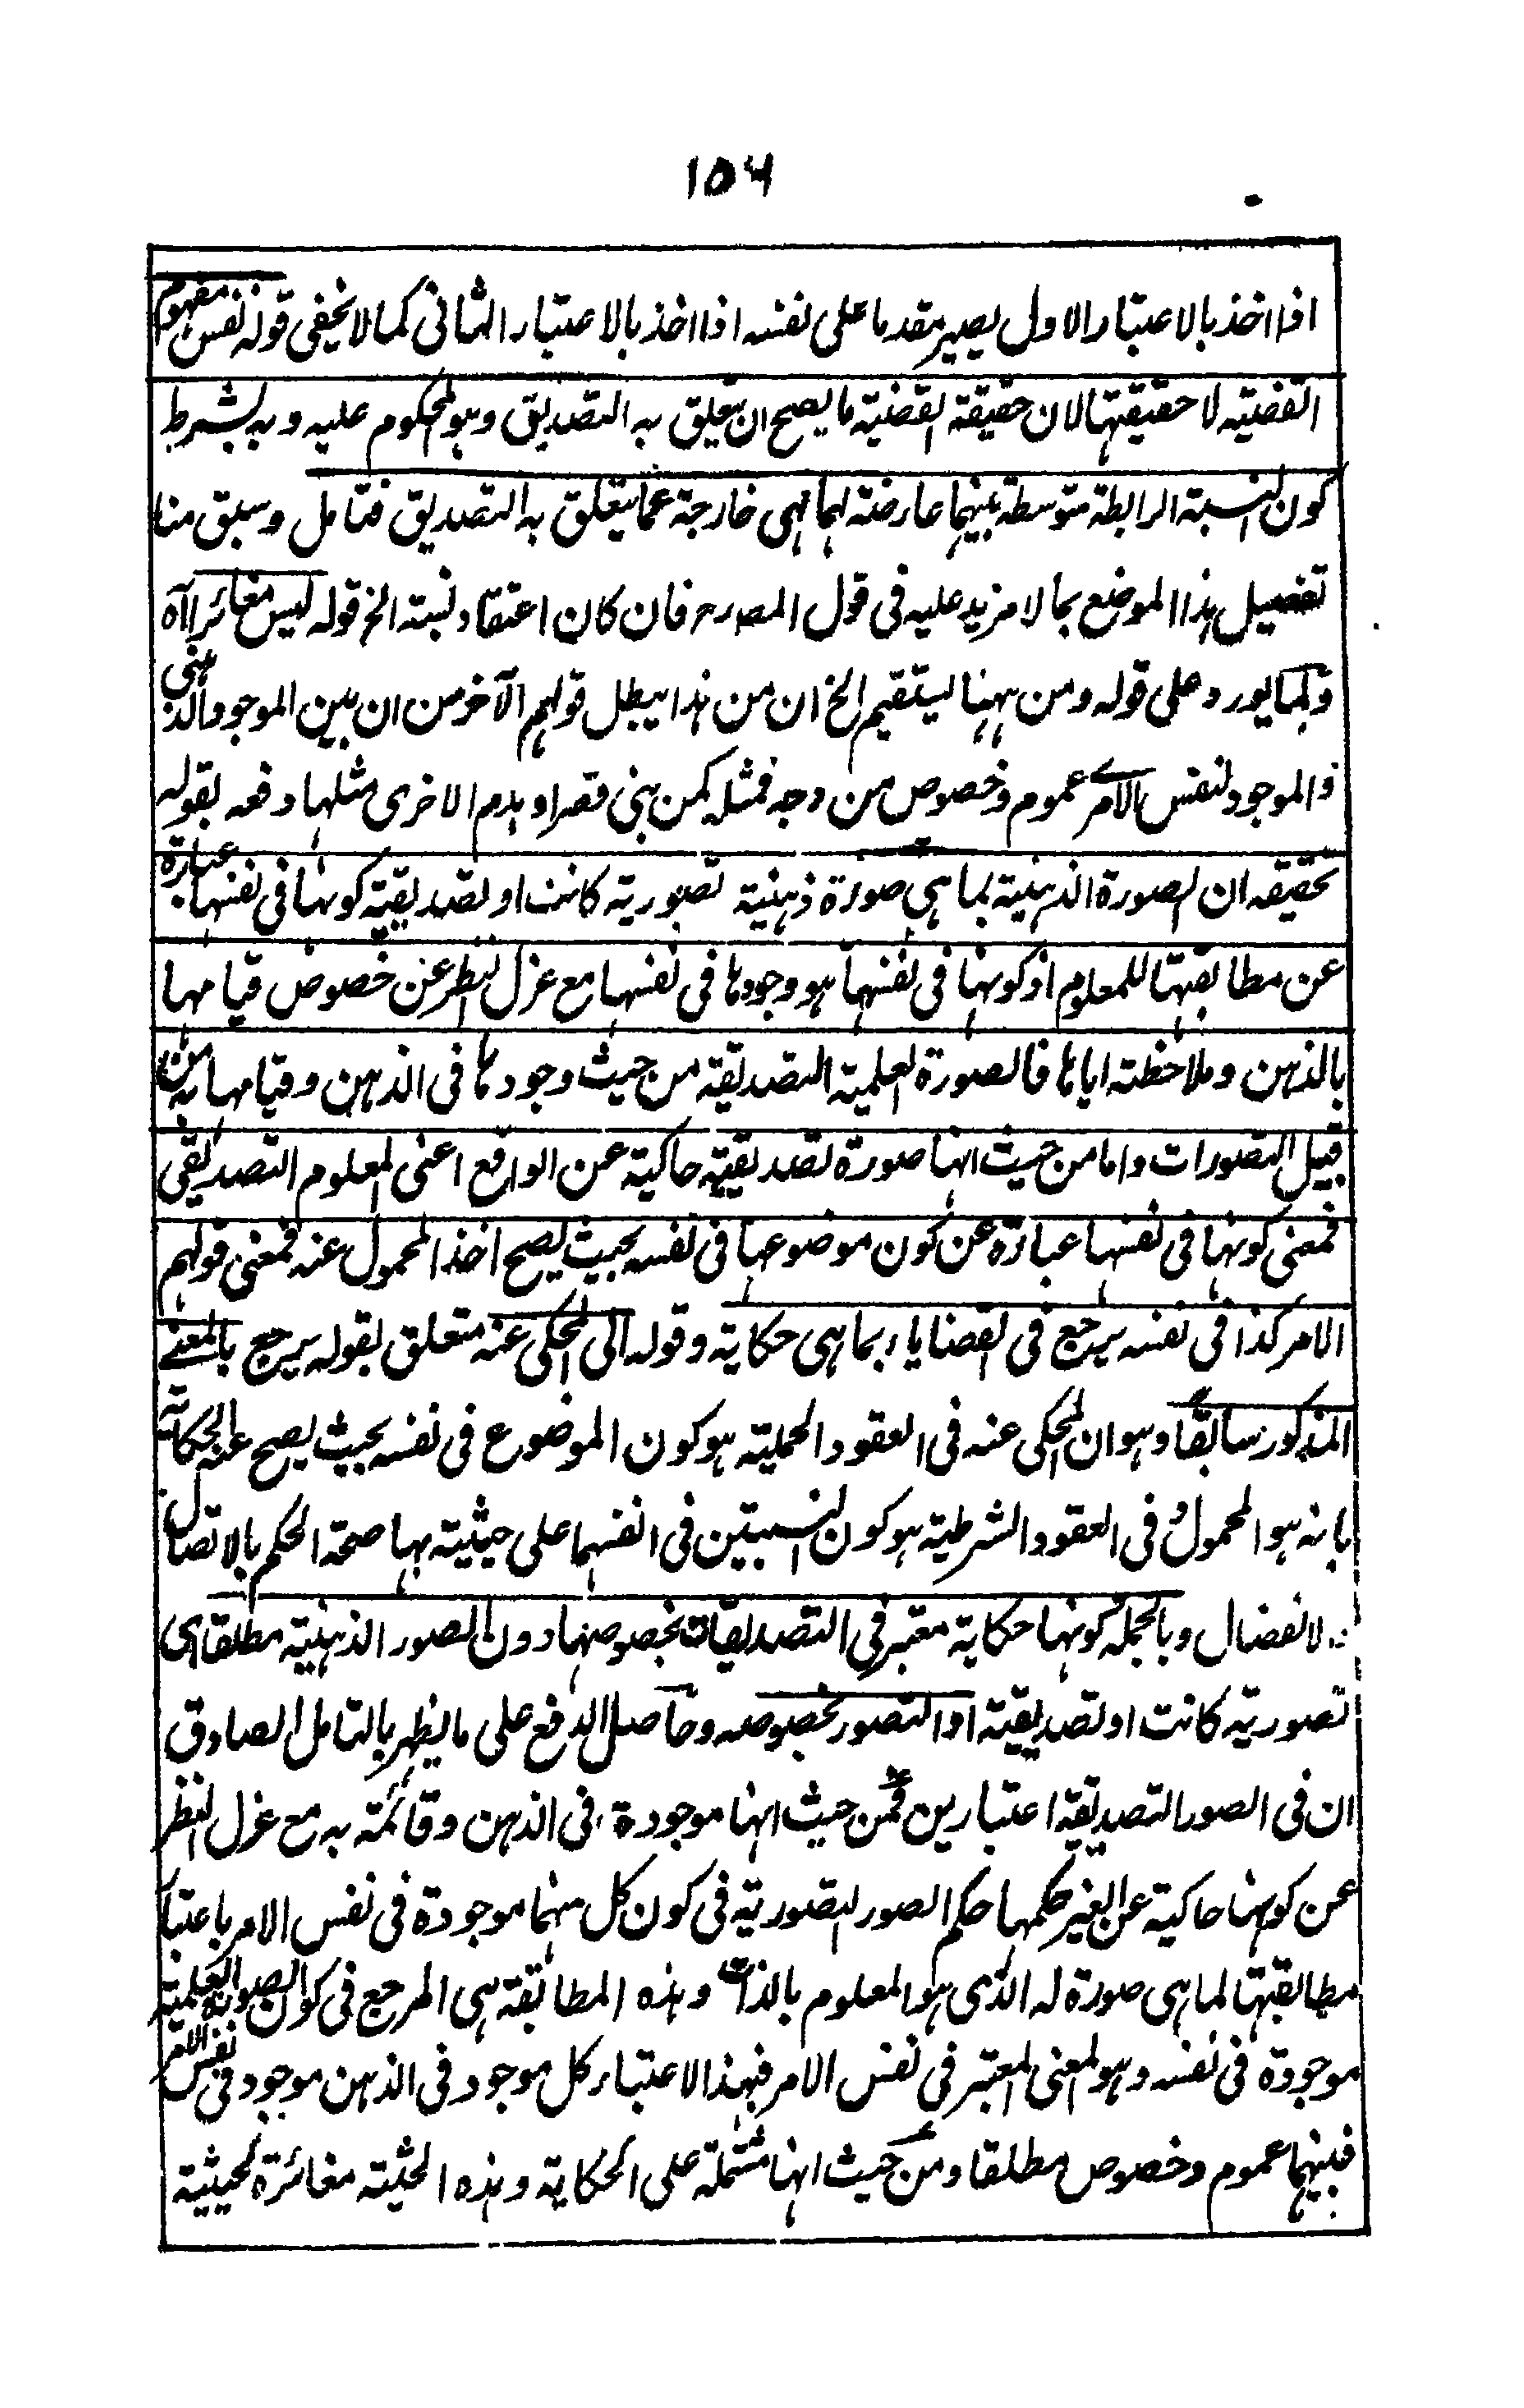 ۱۵۶
اذا اخذ بالاعتبار الاول يصير مقدما على نفسه اذا اخذ بالاعتبار الثانى كما لا يخفى قوله نفس مفهوم
القضية لا حقيقتها لان حقيقة القضية ما يصح ان يتعلق به التصديق وهو المحكوم عليه وبه بشرط
كون النسبة الرابطة متوسطة بينهما عارضة لهما لهى خارجة عما يتعلق به التصديق فتامل وسبق منا
تفصيل هذا الموضع بما لا مزيد عليه فى قول المصرح فان كان اعتقاد نسبة الخ قوله ليس مغائرا آه
ولما يورد على قوله ومن ههنا يستقيم الخ ان من هذا يبطل قولهم الآخر من ان بين الموجود الذهنى
والموجود لنفس الامر عموم وخصوص من وجه فمثله كمن بنى قصرا وهدم الاخرى مثلها دفعه بقوله
تحقيقه ان الصورة الذهنية بما هى صورة ذهنية تصورية كانت او تصديقية كونها فى نفسها عبارة
عن مطابقتها للمعلوم اذ كونها فى نفسها هو وجودها فى نفسها مع عزل النظر عن خصوص قيامها
بالذهن وملاحظته اياها فالصورة العلمية التصديقة من حيث وجودها فى الذهن وقيامها به من
قبيل التصورات واما من حيث انها صورة تصديقية حاكية عن الواقع اعنى المعلوم التصديقى
فمعنى كونها فى نفسها عبارة عن كون موضوعها فى نفسه بحيث يصح اخذ المحمول عنه فمعنى قولهم
الامر كذا فى نفسه يرجع فى القضايا بما هى حكاية وقوله الى المحكى عنه متعلق بقوله يرجع بالمعنے
المذكور سابقا وهو ان المحكى عنه فى العقود الحملية هو كون الموضوع فى نفسه بحيث يصح عنه الحكاية
بانه هو المحمول وفى العقود الشرطية هو كون النسبتين فى انفسهما على حيثية بها صحة الحكم بالاتصال
والانفصال وبالجملة كونها حكاية معتبر فى التصديقات بخصوصها دون الصور الذهنية مطلقا اى
تصورية كانت او تصديقية او التصور بخصوصه وحاصل الدفع على ما يظهر بالتامل الصادق
ان فى الصور التصديقة اعتبارين فمن حيث انها موجودة فى الذهن وقائمة به مع عزل النظر
عن كونها حاكية عن الغير حكمها حكم الصور التصورية فى كون كل منهما موجودة فى نفس الامر باعتبار
مطابقتها لما هى صورة له الذى هو المعلوم بالذات وهذه المطابقة هى المرجع فى كون الصورة العلمية
موجودة فى نفسه وهو المعنى المعتبر فى نفس الامر فبهذا الاعتبار كل موجود فى الذهن موجود فى نفس الامر
فبينهما عموم وخصوص مطلقا ومن حيث انها مشتملة على الحكاية وهذه الحثية مغائرة لحيثية